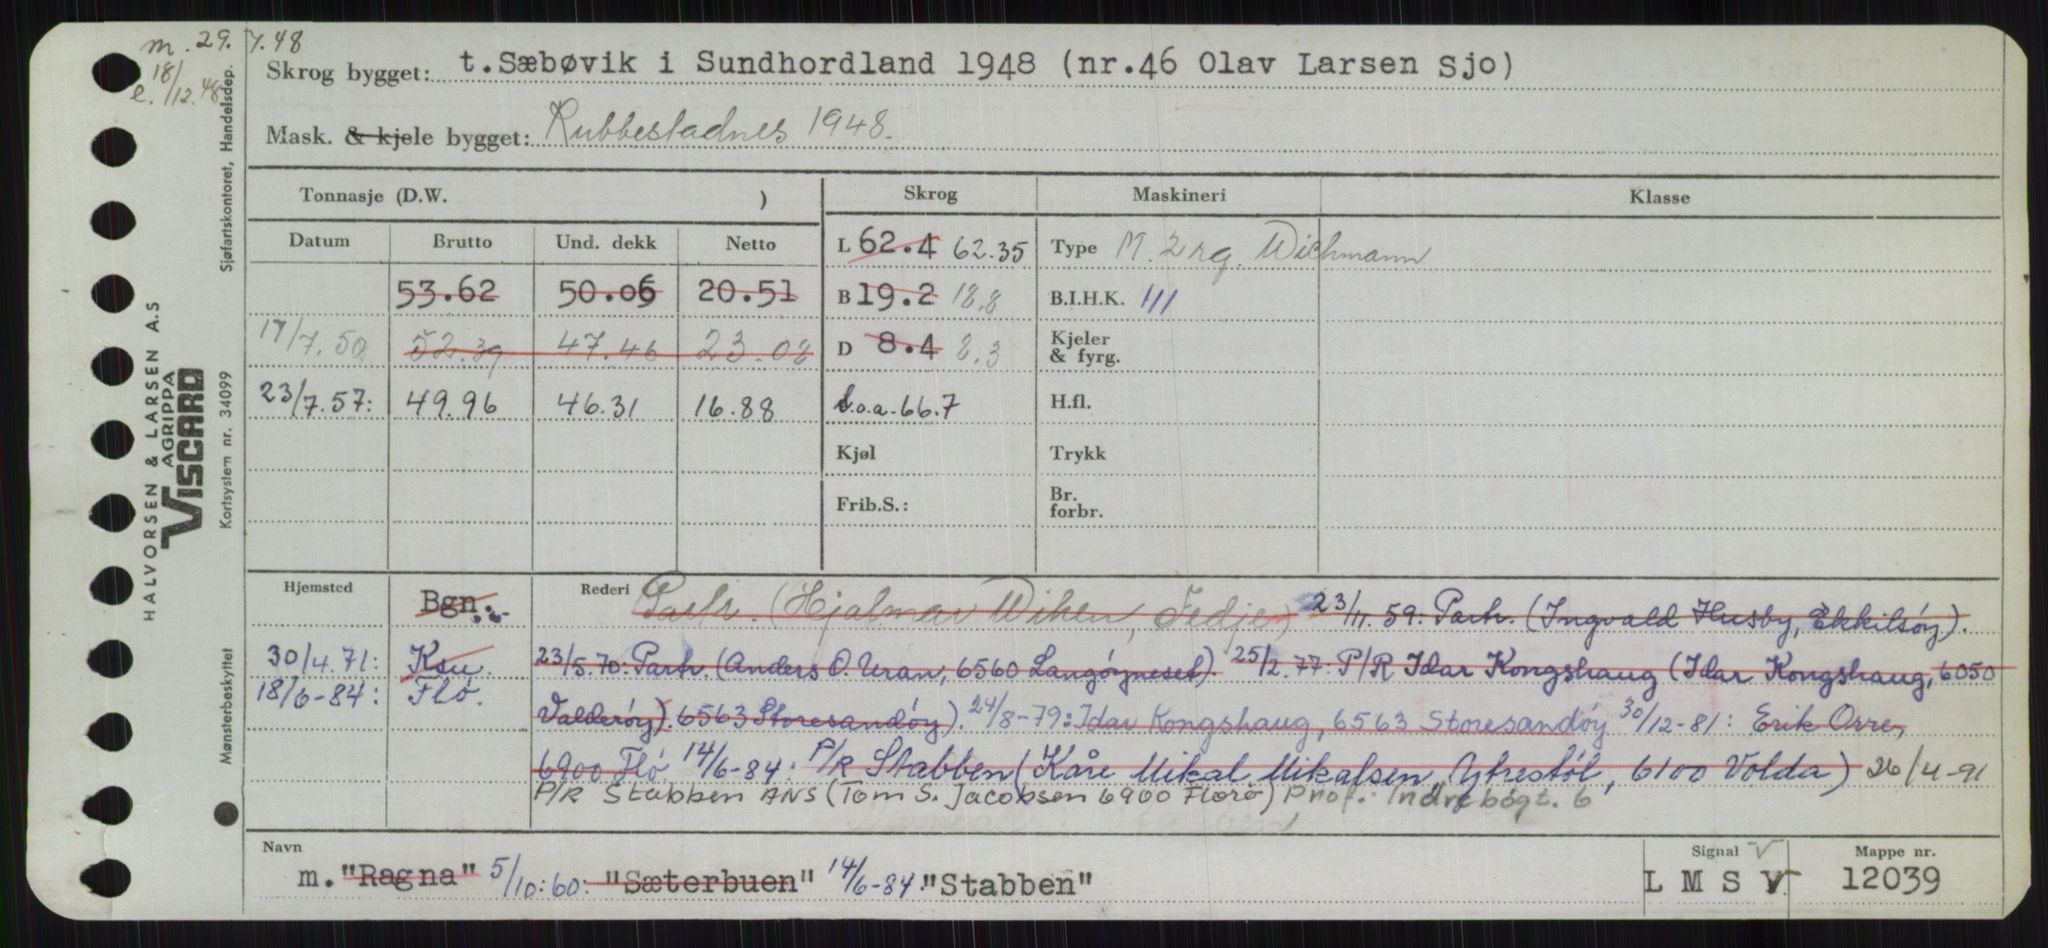 m. 29. 7.48
e. 18/12.48
Skrog bygget: t.Sæbøvik i Sundhordland 1948 (nr.46 Olav Larsen Sjo)
Mask. & kjele bygget: Rubbestadnes 1948.
Tonnasje (D.W. )
Skrog
Maskineri
Klasse
Datum Brutto Und. dekk Netto
L 62.4 62.35
Type M. 2 rg. Wichmann
53.62 50.06 20.51
B 19.2 18.8
B.I.H.K. 111
17/7.50 52.39 47.46 23.02
D 8.4 8.3
Kjeler
& fyrg.
23/7.57: 49.96 46.31 16.88
l.o.a. 66.7
H.fl.
Kjøl
Trykk
Frib.S.:
Br.
forbr.
Hjemsted Bgn.
Rederi Partr. (Hjalmar Wiken, Fedje) 23/11.59: Partr. (Ingvald Husby, Ekkilsøy).
30/4.71: Ksu. 23/5.70: Partr. (Anders O. Uran, 6560 Langøyneset). 25/2.77: P/R Idar Kongshaug (Idar Kongshaug, 6050
18/6-84: Flø. Valderøy). 6563 Storesandøy). 24/8-79: Idar Kongshaug, 6563 Storesandøy 30/12-81: Erik Orre,
6900 Flø 14/6-84: P/R Stabben (Kåre Mikal Mikalsen, Ytrestøl, 6100 Volda) 26/4-91
P/R Stabben ANS (Tom S. Jacobsen 6900 Florø) Prof. Indrebøgt. 6
Navn
m. "Ragna" 5/10:60: "Sæterbuen" 14/6-84: "Stabben"
Signal
L M S V
Mappe nr.
12039
HALVORSEN & LARSEN A.S
AGRIPPA
VISCARD
Sjøfartskontoret, Handelsdep.
Kortsystem nr. 34099
Mønsterbeskyttet